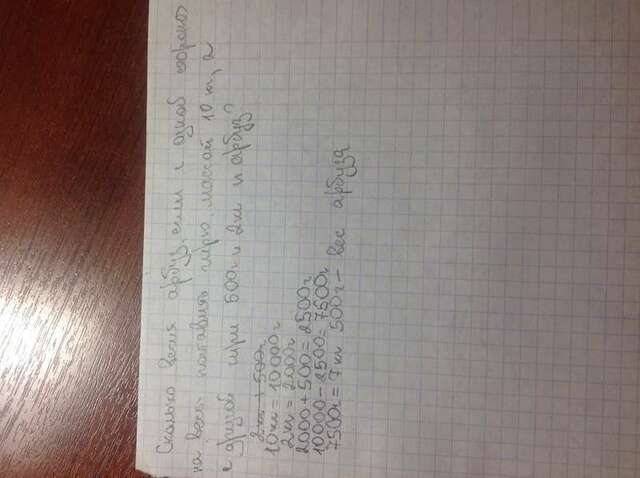 Сколько весил арбуз, если с одной стороны
на весы поставили гирю массой 10 кг, а
с другой гири 500г и 2кг и арбуз?
2кг + 500г
10кг = 10000г
2кг = 2000г
2000 + 500 = 2500г
10000 - 2500 = 7500г
7500г = 7кг 500г - вес арбуза